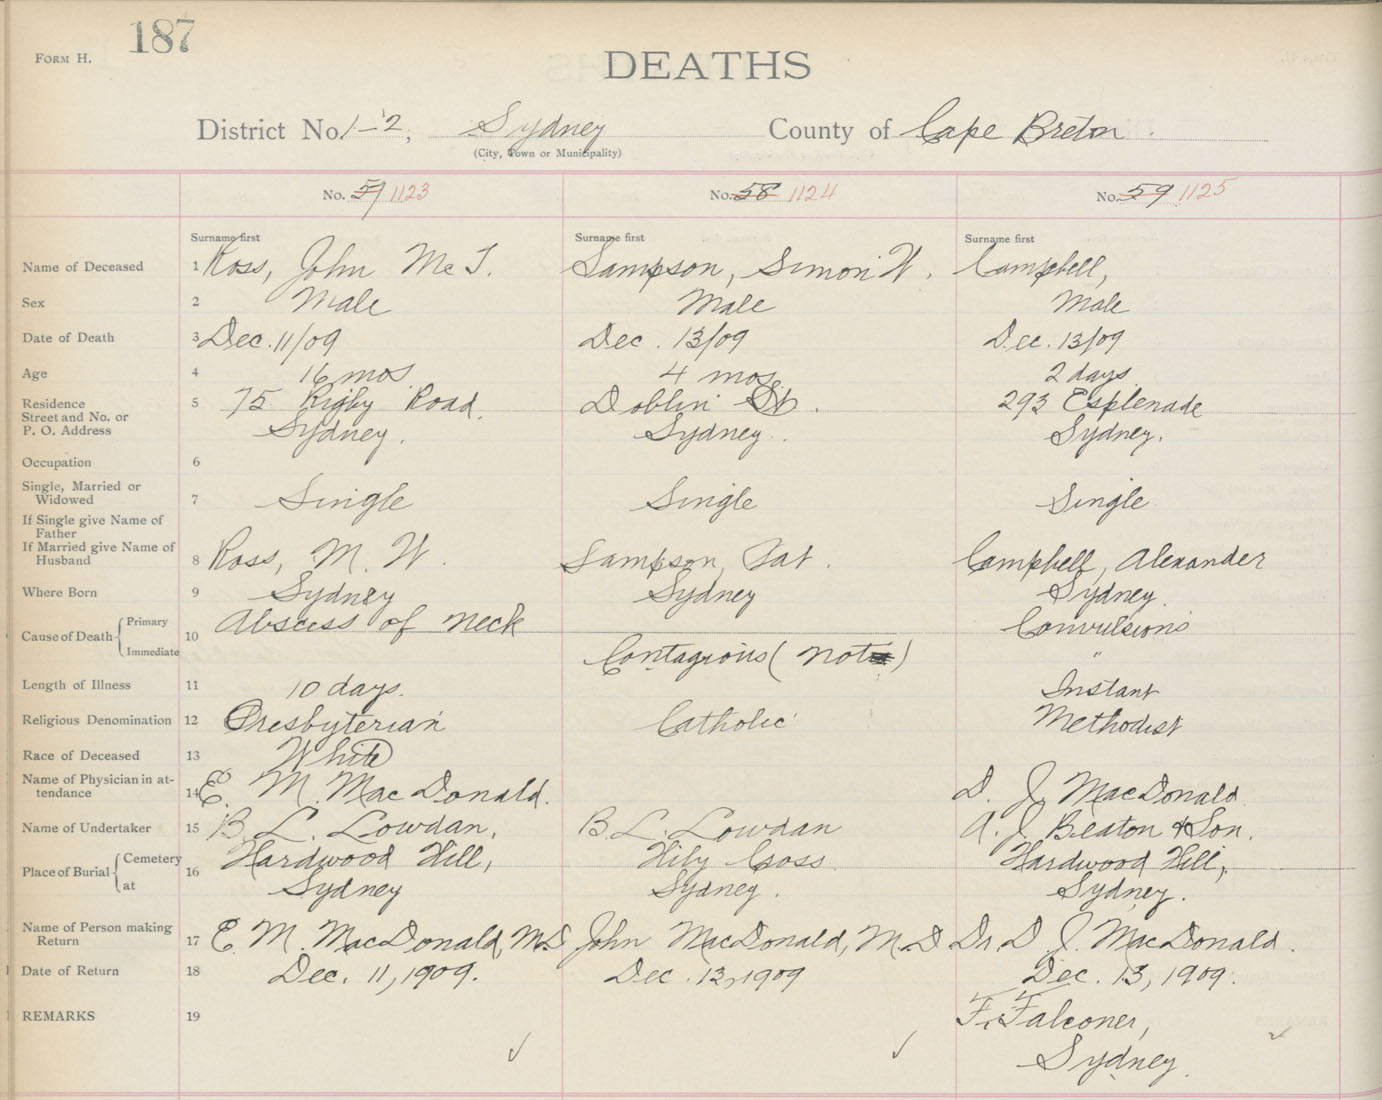 187
FORM H.
DEATHS
District No. 1-2, Sydney County of Cape Breton.
(City, Town or Municipality)
No. 57 1123 No. 58 1124 No. 59 1125
Surname first Surname first Surname first
Name of Deceased 1 Ross, John Mc I. Sampson, Simon W. Campbell,
Sex 2 Male Male Male
Date of Death 3 Dec. 11/09 Dec. 13/09 Dec. 13/09
Age 4 16 mos 4 mos. 2 days
Residence 5 75 Rigby Road. Doblin St. 293 Esplenade
Street and No. or
P. O. Address Sydney. Sydney. Sydney.
Occupation 6
Single, Married or
Widowed 7 Single Single Single
If Single give Name of
Father
If Married give Name of
Husband 8 Ross, M. W. Sampson, Pat. Campbell, Alexander
Where Born 9 Sydney Sydney Sydney.
Cause of Death 10 Primary Abscess of neck Convulsions
Immediate Contagious (not) "
Length of Illness 11 10 days. Instant
Religious Denomination 12 Presbyterian Catholic Methodist
Race of Deceased 13 White
Name of Physician in at-
tendance 14 E. M. MacDonald. D. J. MacDonald
Name of Undertaker 15 B. L. Lowdan, B. L. Lowdan A. J. Beaton & Son.
Place of Burial 16 Cemetery Hardwood Hill, Hily Coss Hardwood Hill,
at Sydney Sydney. Sydney.
Name of Person making
Return 17 E. M. MacDonald, M.D John MacDonald, M.D Dr. D. J. MacDonald.
Date of Return 18 Dec. 11, 1909. Dec. 13, 1909 Dec. 13, 1909.
REMARKS 19 F. Falconer,
Sydney.